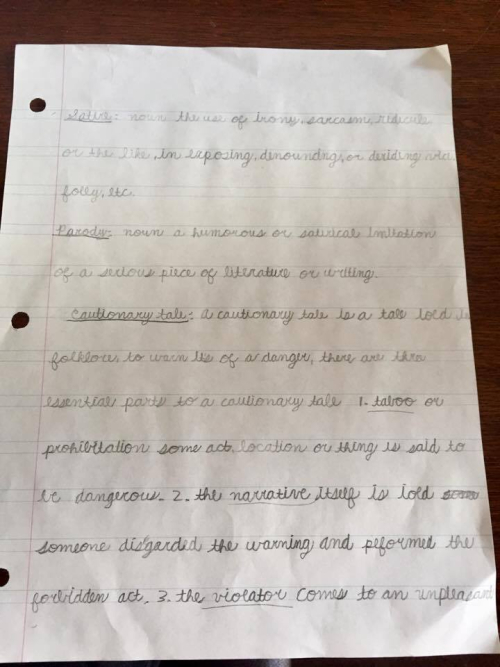 Satire: noun the use of irony, sarcasm, ridicule
or the like, in exposing, dinoundng, or deriding vice,
folly, etc.
Parody: noun a humorous or satirical imitation
of a serious piece of literature or writing.
Cautionary tale: a cautionary tale is a tale told in
folklore, to warn its of a danger, there are thre
essential parts to a cautionary tale 1. taboo or
prohibitation some act, location or thing is said to
be dangerous. 2. the narrative itself is told
someone disgarded the warning and peformed the
forbidden act. 3. the violator comes to an unpleasant